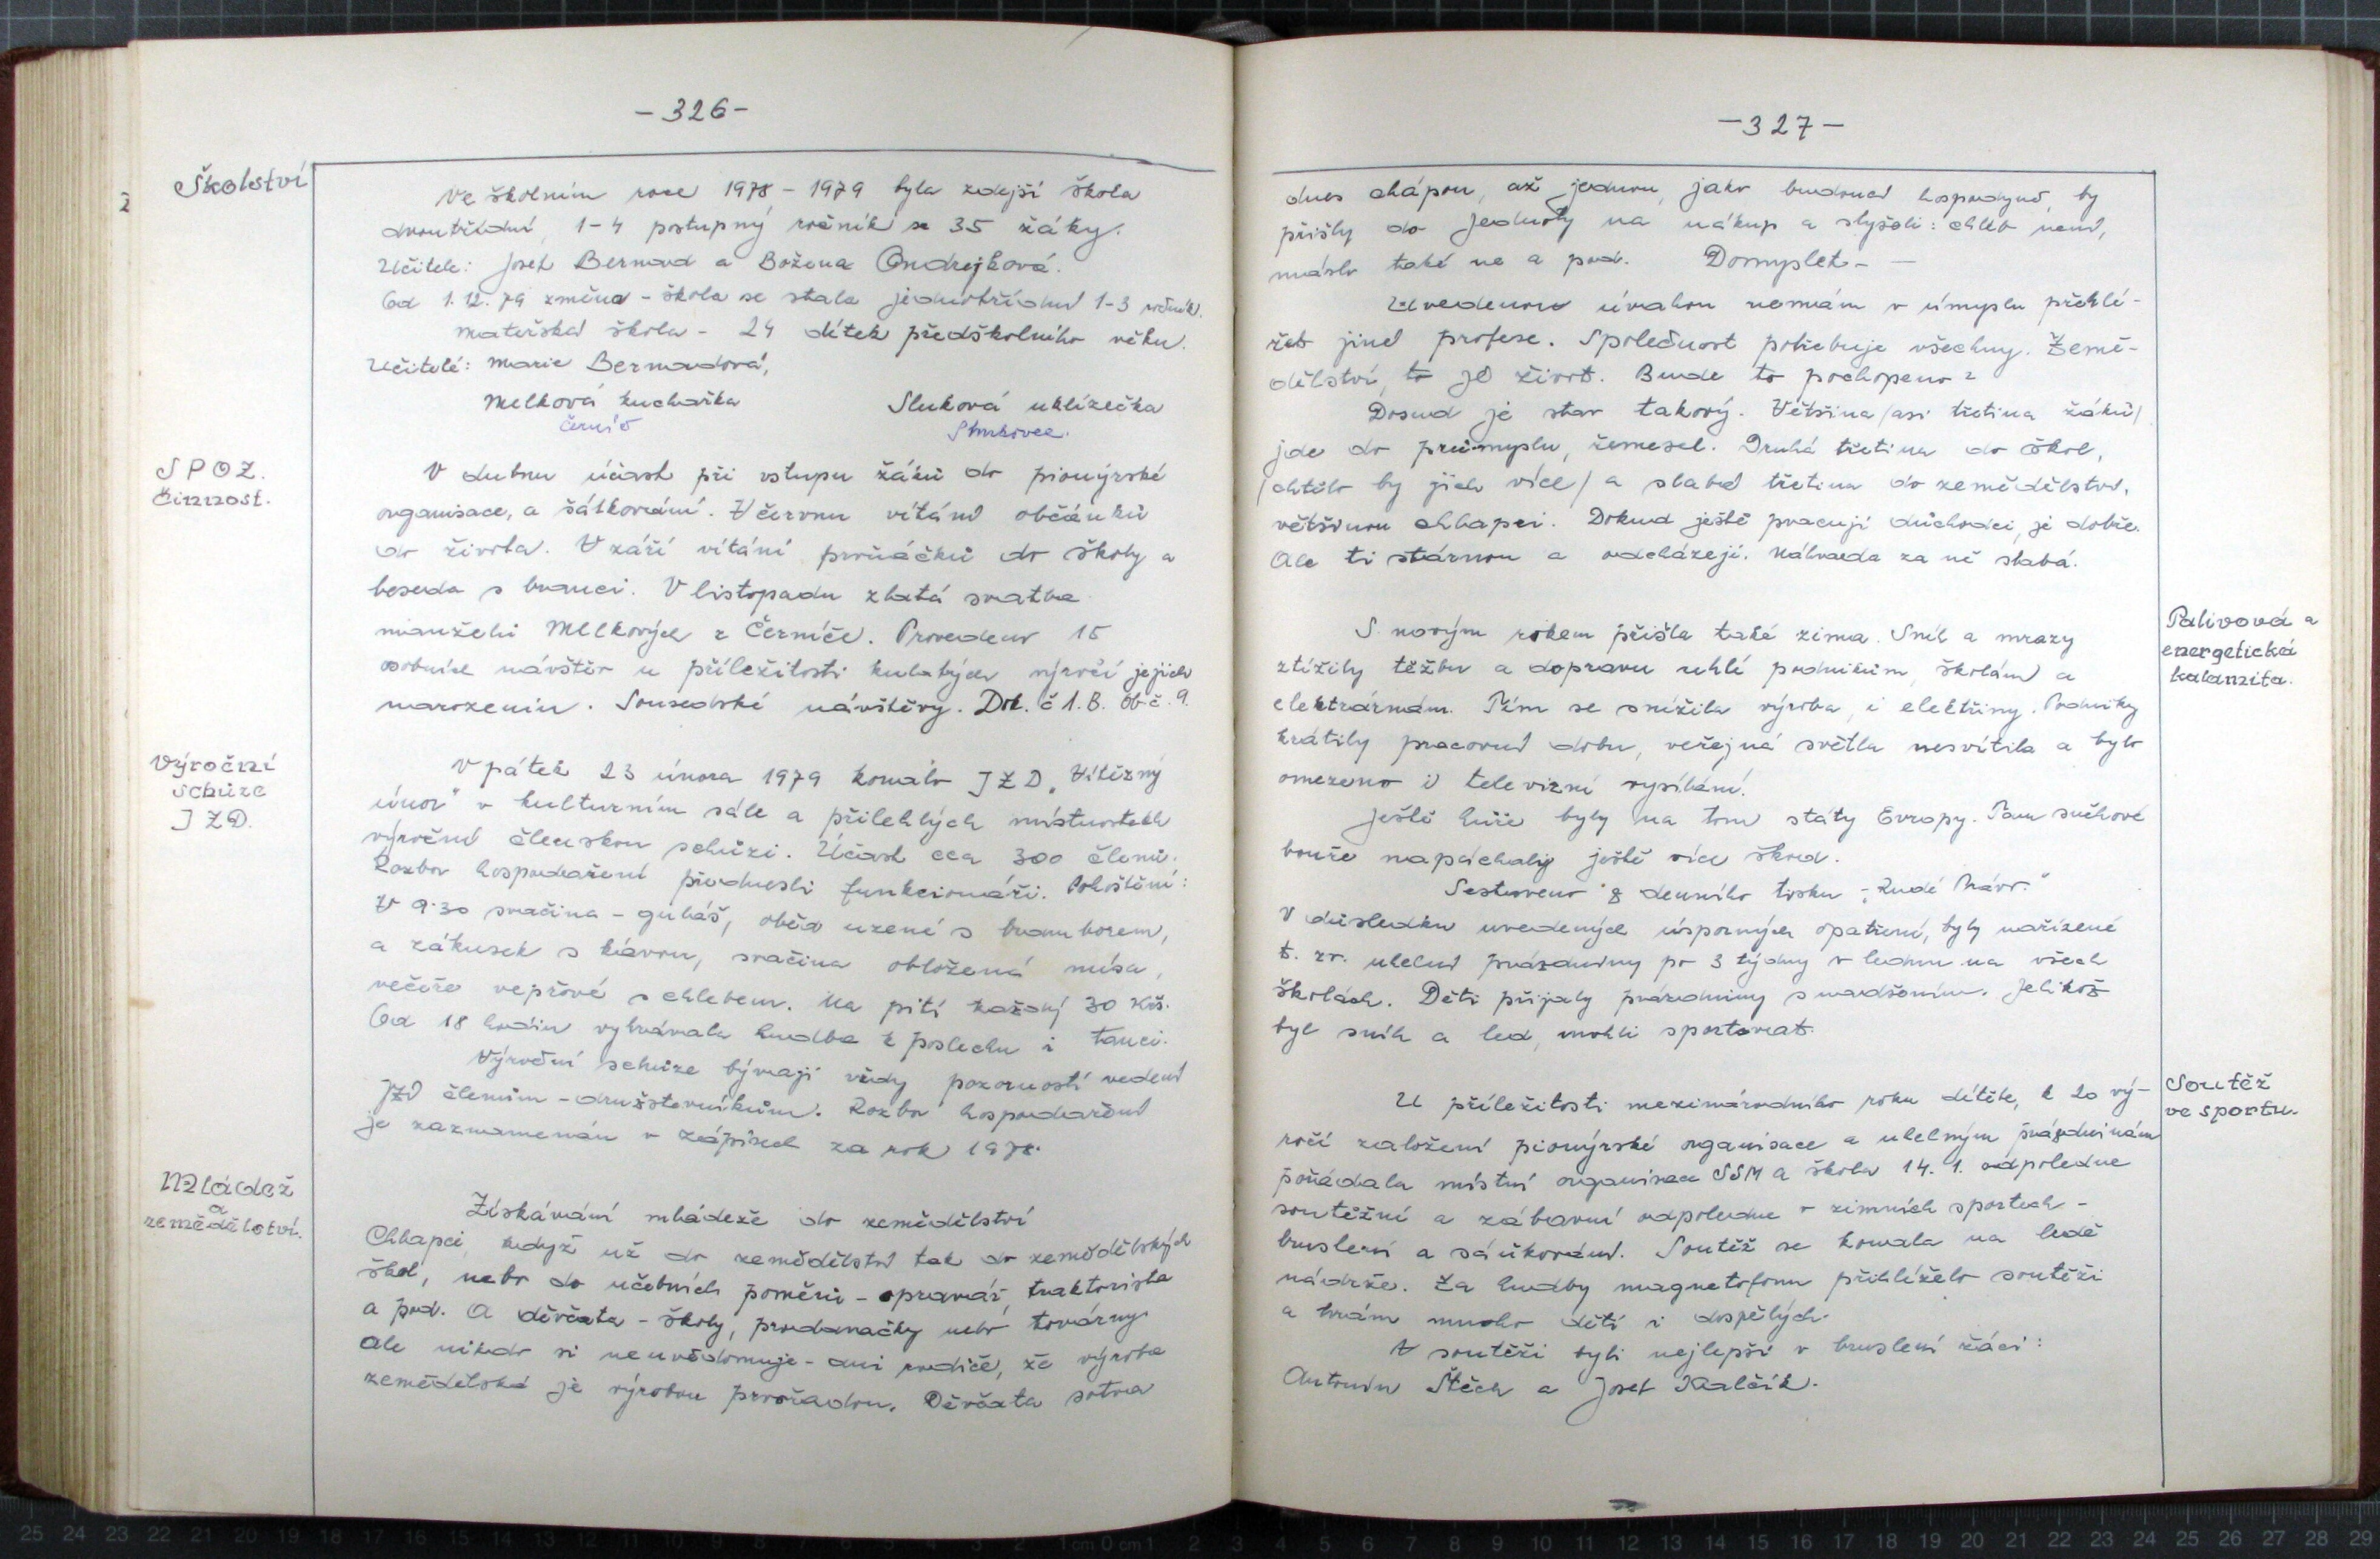 -326-
Školství
Ve školním roce 1978-1979 byla zdejší škola
dvoutřídní, 1-4 postupný ročník se 35 žáky.
Učitelé: Josef Bernard a Božena Ondrejková.
Od 1.12.79 změna - škola se stala jednotřídní 1-3 ročník.
Mateřská škola - 24 dítek předškolního věku.
Učitelé: Marie Bernardová,
Melková kuchařka Sluková uklízečka
Černíč
SPOZ.
činnost.
V dubnu účast při vstupu žáků do pionýrské
organisace, a šátkování. V červnu vítání občánků
do života. V září vítání prvňáčků do školy a
beseda s branci. V listopadu zlatá svatba
manželů Melkových z Černíče. Provedeno 15
osobních návštěv u příležitosti kulatých výročí jejich
narozenin. Sousedské návštěvy. Dok. č 1.B. Ob č. 9.
Výroční
schůze
JZD.
V pátek 23 února 1979 konalo JZD „Vítězný
únor" v kulturním sále a přilehlých místnostech
výroční členskou schůzi. Účast cca 300 členů.
Rozbor hospodaření přednesli funkcionáři. Pohoštění:
V 9.30 svačina - guláš, oběd uzené s bramborem,
a zákusek s kávou, svačina obložená mísa,
večeře vepřové s chlebem. Na pití každý 30 Kčs.
Od 18 hodin vyhrávala hudba k poslechu i tanci.
Výroční schůze bývají vždy pozorností vedení
JZD členům - družstevníkům. Rozbor hospodaření
je zaznamenán v zápisech za rok 1978.
Mládež
a
zemědělství.
Získávání mládeže do zemědělství
Chlapci, když už do zemědělství tak do zemědělských
škol, nebo do učebních poměrů - opravář, traktorista
a pod. A děvčata - školy, prodavačky nebo továrny.
Ale nikdo si neuvědomuje - ani rodiče, že výroba
zemědělská je výrobou prvořadou. Děvčata sotva
-327-
dnes chápou, až jednou, jako budoucí hospodyně, by
přišly do Jednoty na nákup a slyšeli: chléb není,
máslo také ne a pod. Domyslet - —
Uvedenou úvahou nemám v úmyslu přehlí-
žet jiné profese. Společnost potřebuje všechny. Země-
dělství, to je život. Bude to pochopeno?
Dosud je stav takový. Většina /asi třetina žáků/
jde do průmyslu, řemesel. Druhá třetina do škol,
/chtělo by jich více/ a slabá třetina do zemědělství,
většinou chlapci. Dokud ještě pracují důchodci, je dobře.
Ale ti stárnou a odcházejí. Náhrada za ně slabá.
Palivová a
energetická
kalamita.
S novým rokem přišla také zima. Sníh a mrazy
ztížily těžbu a dopravu uhlí podnikům, školám a
elektrárnám. Tím se snížila výroba, i elektřiny. Podniky
krátily pracovní dobu, veřejná světla nesvítila a bylo
omezeno i televizní vysílání.
Ještě hůře byly na tom státy Evropy. Tam sněhové
bouře napáchaly ještě více škod.
Sestaveno z denního tisku - „Rudé Právo."
V důsledku uvedených úsporných opatření, byly nařízené
t. zv. uhelné prázdniny po 3 týdny v lednu na všech
školách. Děti přijaly prázdniny s nadšením. Jelikož
byl sníh a led, mohli sportovat.
Soutěž
ve sportu.
U příležitosti mezinárodního roku dítěte, k 20 vý-
ročí založení pionýrské organisace a uhelným prázdninám
pořádala místní organisace SSM a škola 14. 1. odpoledne
soutěžní a zábavní odpoledne v zimních sportech -
bruslení a sáňkování. Soutěž se konala na ledě
nádrže. Za hudby magnetofonu přihlíželo soutěži
a hrám mnoho dětí i dospělých.
V soutěži byli nejlepší v bruslení žáci:
Antonín Štěch a Josef Kalčík.